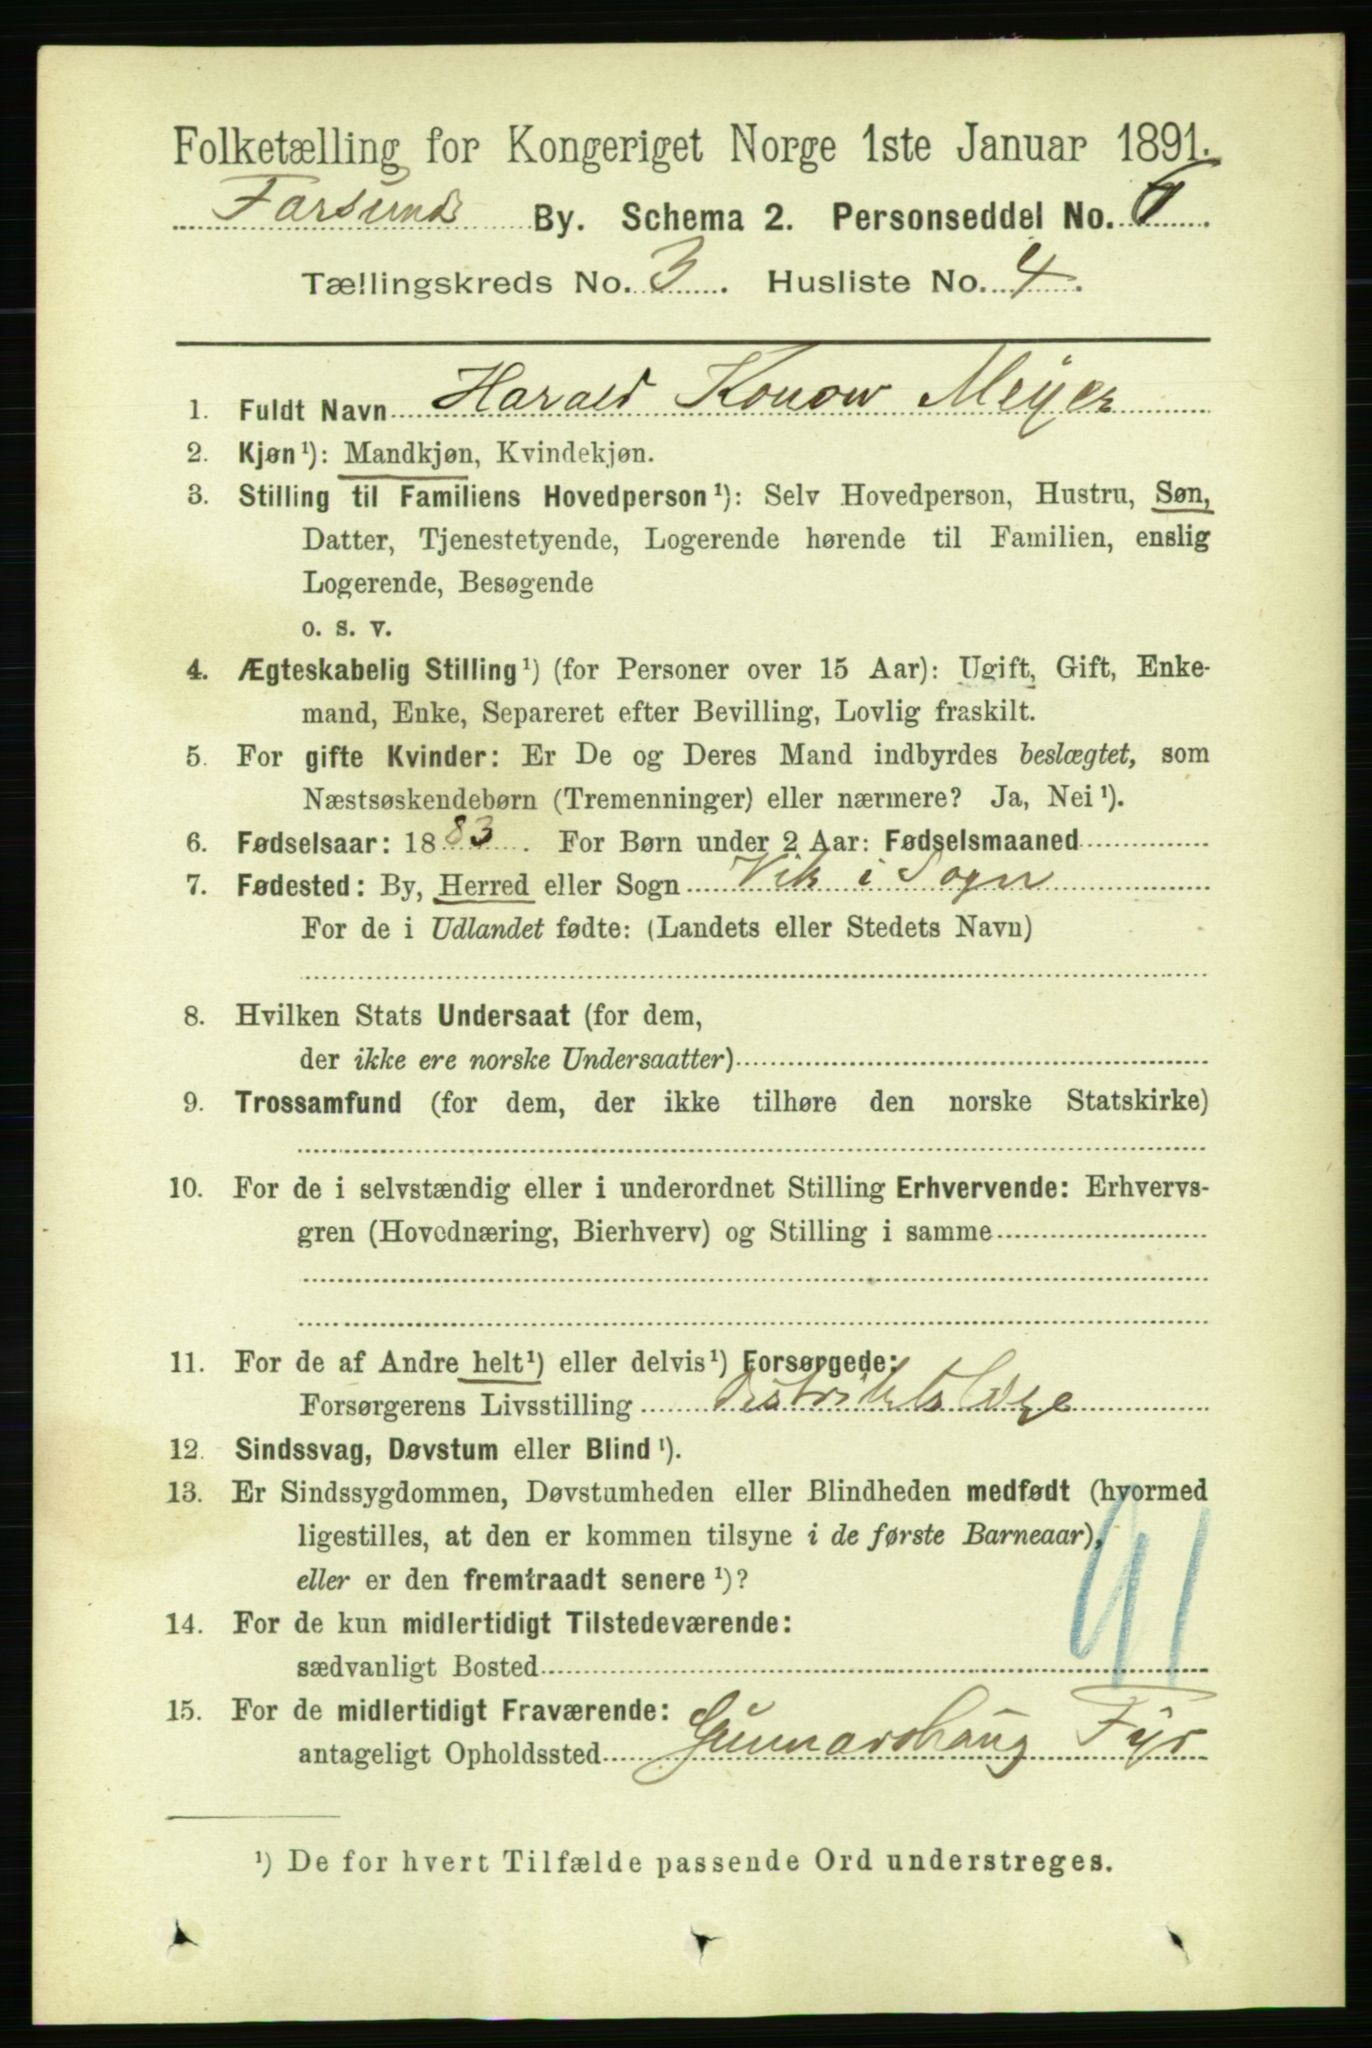 Folketælling for Kongeriget Norge 1ste Januar 1891.
Farsund By. Schema 2. Personseddel No.
Tællingskreds No. 3. Husliste No. 4.
1. Fuldt Navn Harald Konow Meyer
2. Kjøn¹): Mandkjøn, Kvindekjøn.
3. Stilling til Familiens Hovedperson¹): Selv Hovedperson, Hustru, Søn,
Datter, Tjenestetyende, Logerende hørende til Familien, enslig
Logerende, Besøgende
o. s. v.
4. Ægteskabelig Stilling¹) (for Personer over 15 Aar): Ugift, Gift, Enke-
mand, Enke, Separeret efter Bevilling, Lovlig fraskilt.
5. For gifte Kvinder: Er De og Deres Mand indbyrdes beslægtet, som
Næstsøskendebørn (Tremenninger) eller nærmere? Ja, Nei¹).
6. Fødselsaar: 1883. For Børn under 2 Aar: Fødselsmaaned
7. Fødested: By, Herred eller Sogn Vik i Sogn
For de i Udlandet fødte: (Landets eller Stedets Navn)
8. Hvilken Stats Undersaat (for dem,
der ikke ere norske Undersaatter)
9. Trossamfund (for dem, der ikke tilhøre den norske Statskirke)
10. For de i selvstændig eller i underordnet Stilling Erhvervende: Erhvervs-
gren (Hovednæring, Bierhverv) og Stilling i samme
11. For de af Andre helt¹) eller delvis¹) Forsørgede:
Forsørgerens Livsstilling Distriktslæge
12. Sindssvag, Døvstum eller Blind¹).
13. Er Sindssygdommen, Døvstumheden eller Blindheden medfødt (hvormed
ligestilles, at den er kommen tilsyne i de første Barneaar),
eller er den fremtraadt senere¹)?
91
14. For de kun midlertidigt Tilstedeværende:
sædvanligt Bosted
15. For de midlertidigt Fraværende:
antageligt Opholdssted Gunnarshaug Fyr
¹) De for hvert Tilfælde passende Ord understreges.